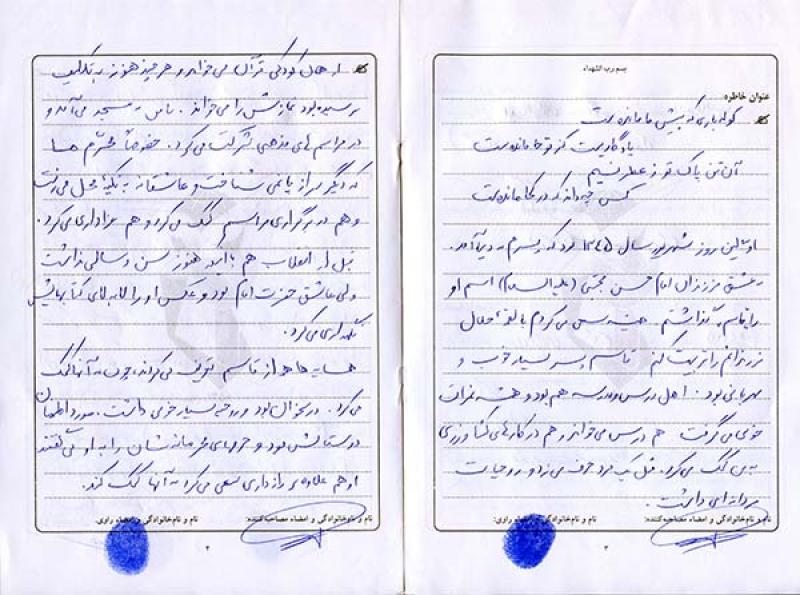 بسم رب الشهداء
عنوان خاطره:
کوله باری که به پیش ما مانده ست
یادگاریست کز تو جا مانده ست
آن تن پاک تو ز عطر نسیم
کس چه داند که در کجا مانده ست
اولین روز شهریور سال ۱۳۴۵ بود که پسرم به دنیا آمد.
به عشق فرزندان امام حسن مجتبی (علیه السلام) اسم او
را قاسم گذاشتم. همیشه سعی می کردم با لقمه حلال
فرزندانم را تربیت کنم. قاسم پسر بسیار خوب و
مهربانی بود. اهل درس و مدرسه هم بود و همیشه نمرات
خوبی می گرفت هم درس می خواند و هم در کارهای کشاورزی
به من کمک می کرد. مثل یک مرد حرف می زد و روحیات
مردانه ای داشت.
نام و نام‌خانوادگی و امضاء مصاحبه‌کننده: نام و نام‌خانوادگی و امضاء راوی:
۳
از همان کودکی قرآن می خواند و هر چند هنوز به تکلیف
نرسیده بود نمازش را می خواند. با من به مسجد می آمد و
در مراسم های مذهبی شرکت می کرد. خصوصاً محرّم ها
که دیگر سر از پا نمی شناخت و عاشقانه به تکیهٔ محل می رفت
و هم در برگزاری مراسم کمک می کرد و هم عزاداری می کرد.
قبل از انقلاب هم با اینکه هنوز سن و سالی نداشت
ولی عاشق حضرت امام بود و عکس او را لابه لای کتابهایش
نگهداری می کرد.
همسایه ها هم از قاسم تعریف می کردند، چون به آنها کمک
می کرد. درسخوان بود و روحیه بسیار خوبی داشت. مورد اطمینان
دوستانش بود و حرفهای محرمانه شان را به او می گفتند
او هم علاوه بر رازداری سعی می کرد به آنها کمک کند.
نام و نام‌خانوادگی و امضاء مصاحبه‌کننده: نام و نام‌خانوادگی و امضاء راوی: